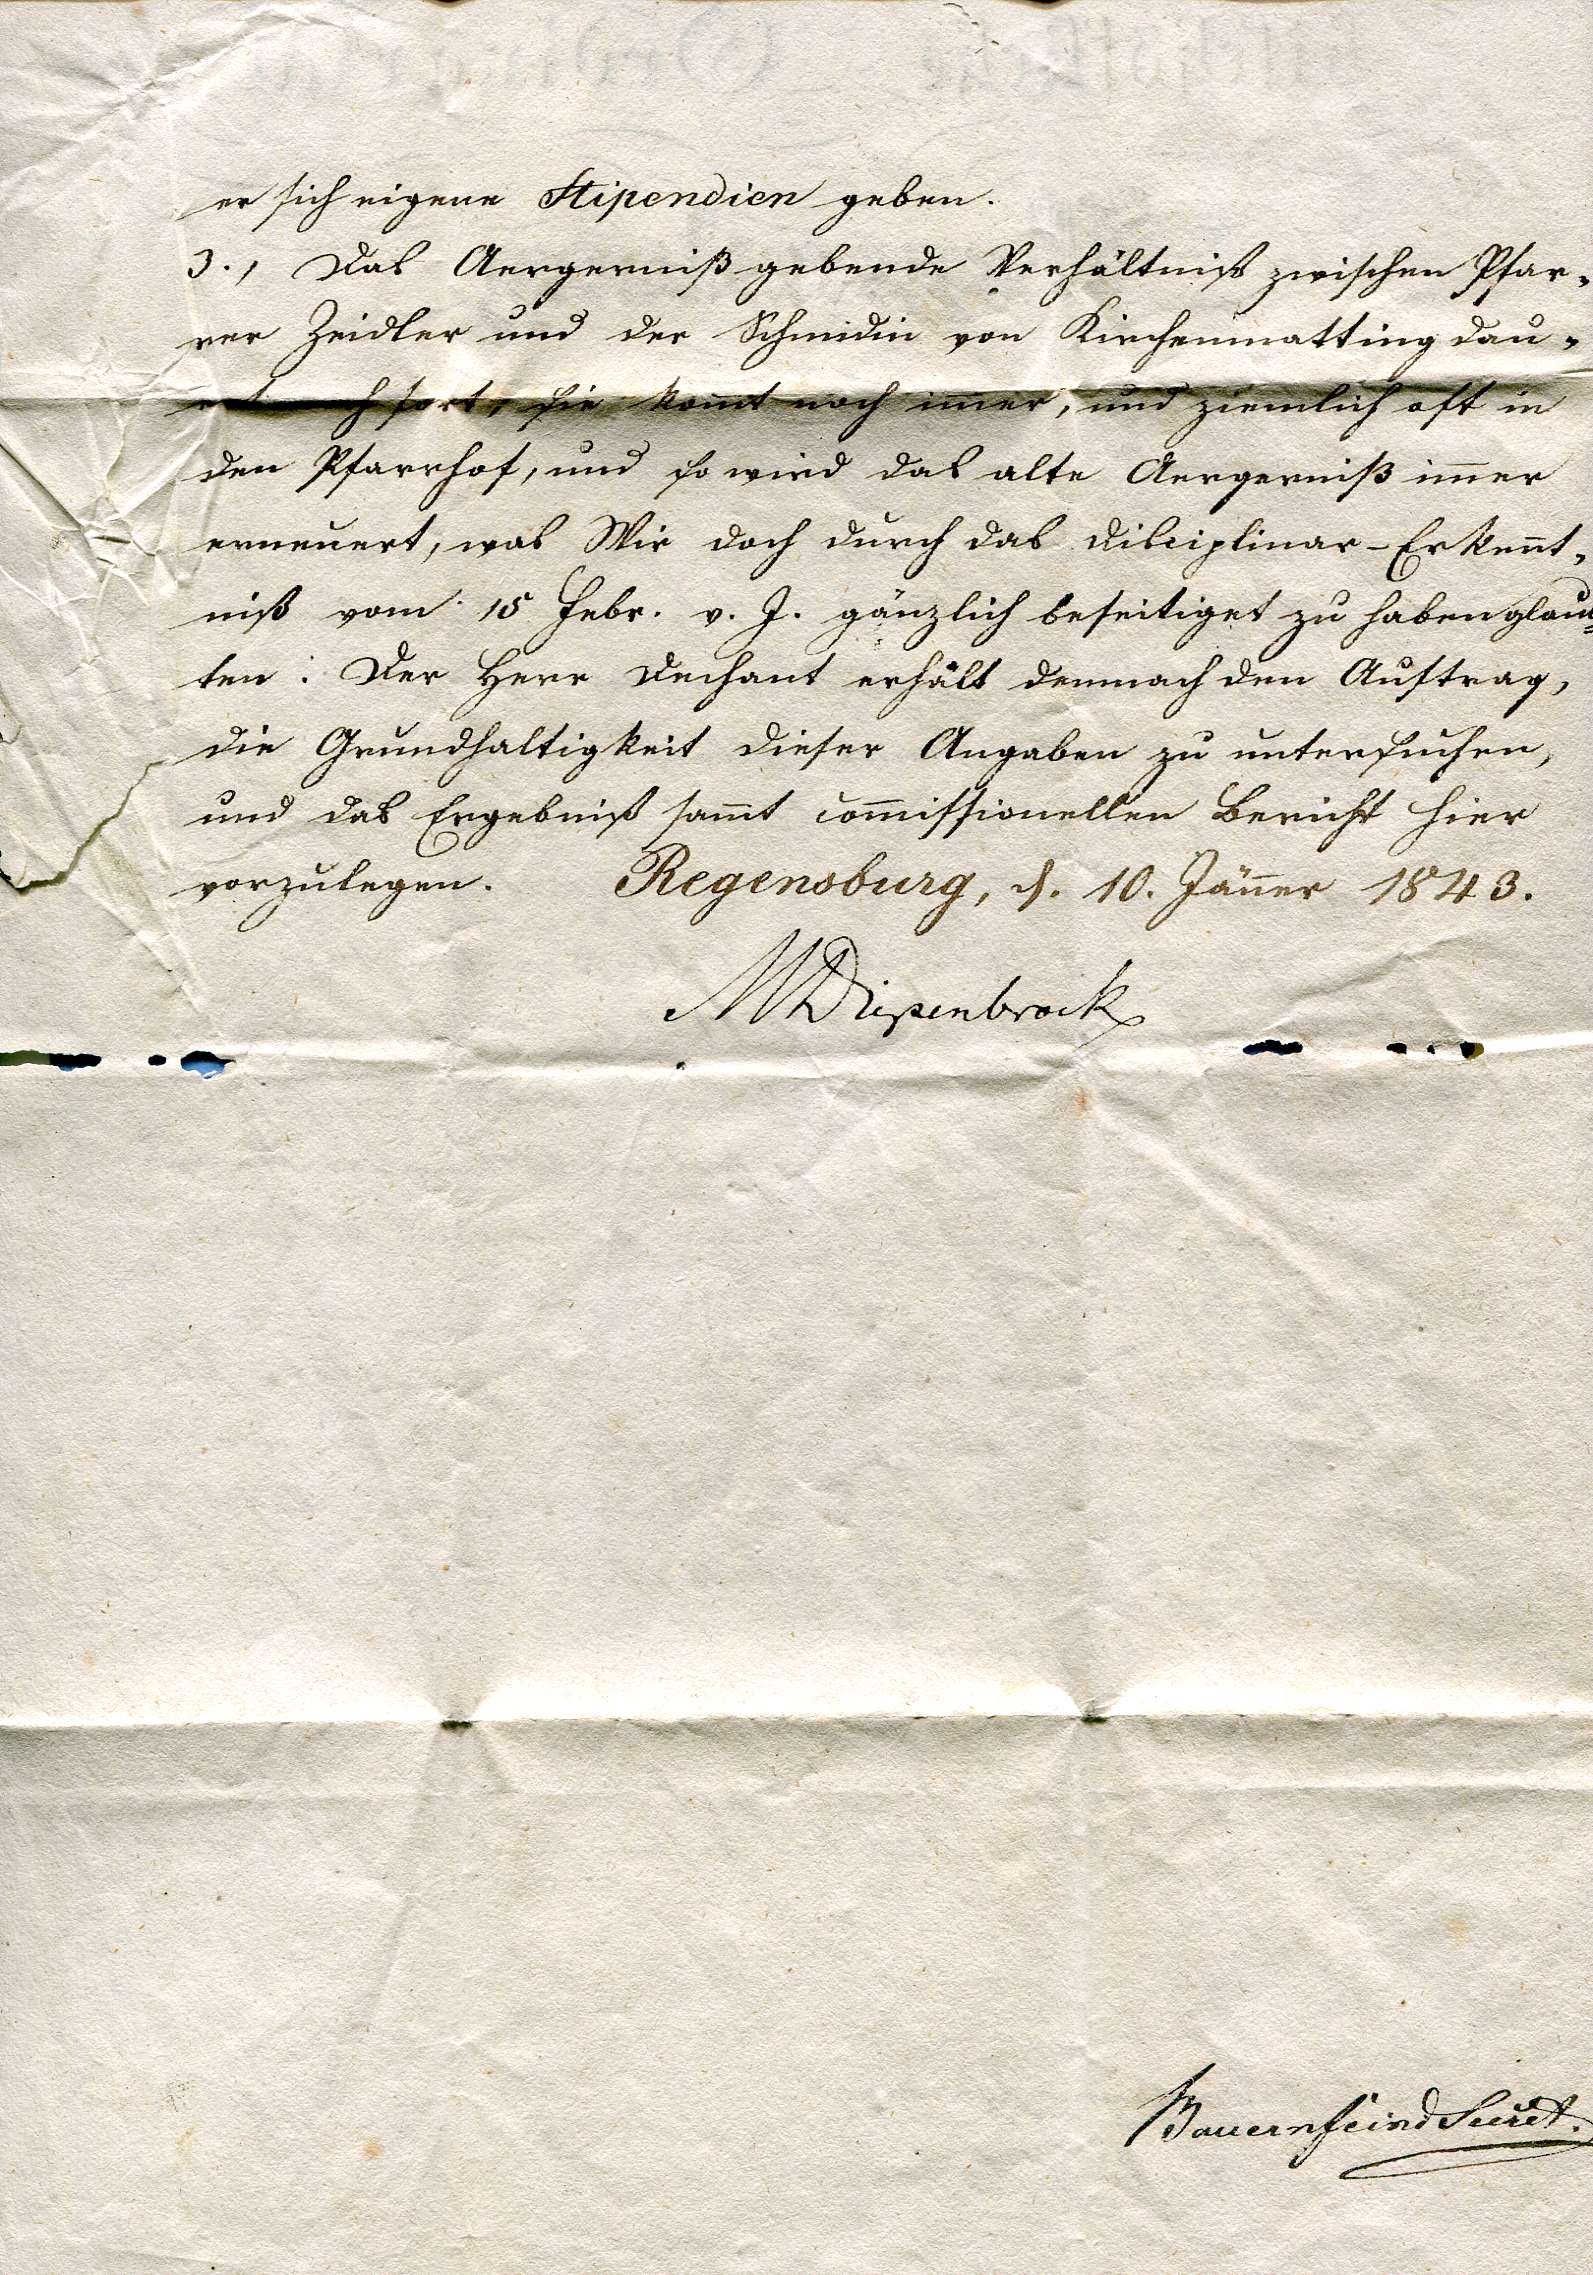 er sich eigene Stipendien geben.
3., Das Aergerniß gebende Verhältniß zwischen Pfar-
rer Zeidler und der Schmidin von Kirchenmatting dau-
fort, sie kom̅t noch im̅er, und ziemlich oft in
den Pfarrhof, und so wird das alte Aergerniß im̅er
erneuert, was Wir doch durch das Disciplinar-Erken̅t-
niß vom 15 Febr. v. J. gänzlich beseitiget zu haben glaub-
ten. Der Herr Dechant erhält demnach den Auftrag,
die Grundhaltigkeit dieser Angaben zu untersuchen,
und das Ergebniß sam̅t com̅issionellen Bericht hier
vorzulegen. Regensburg, d. 10. Jän̅er 1843.
MDiepenbrock
Bauernfeind Secret.